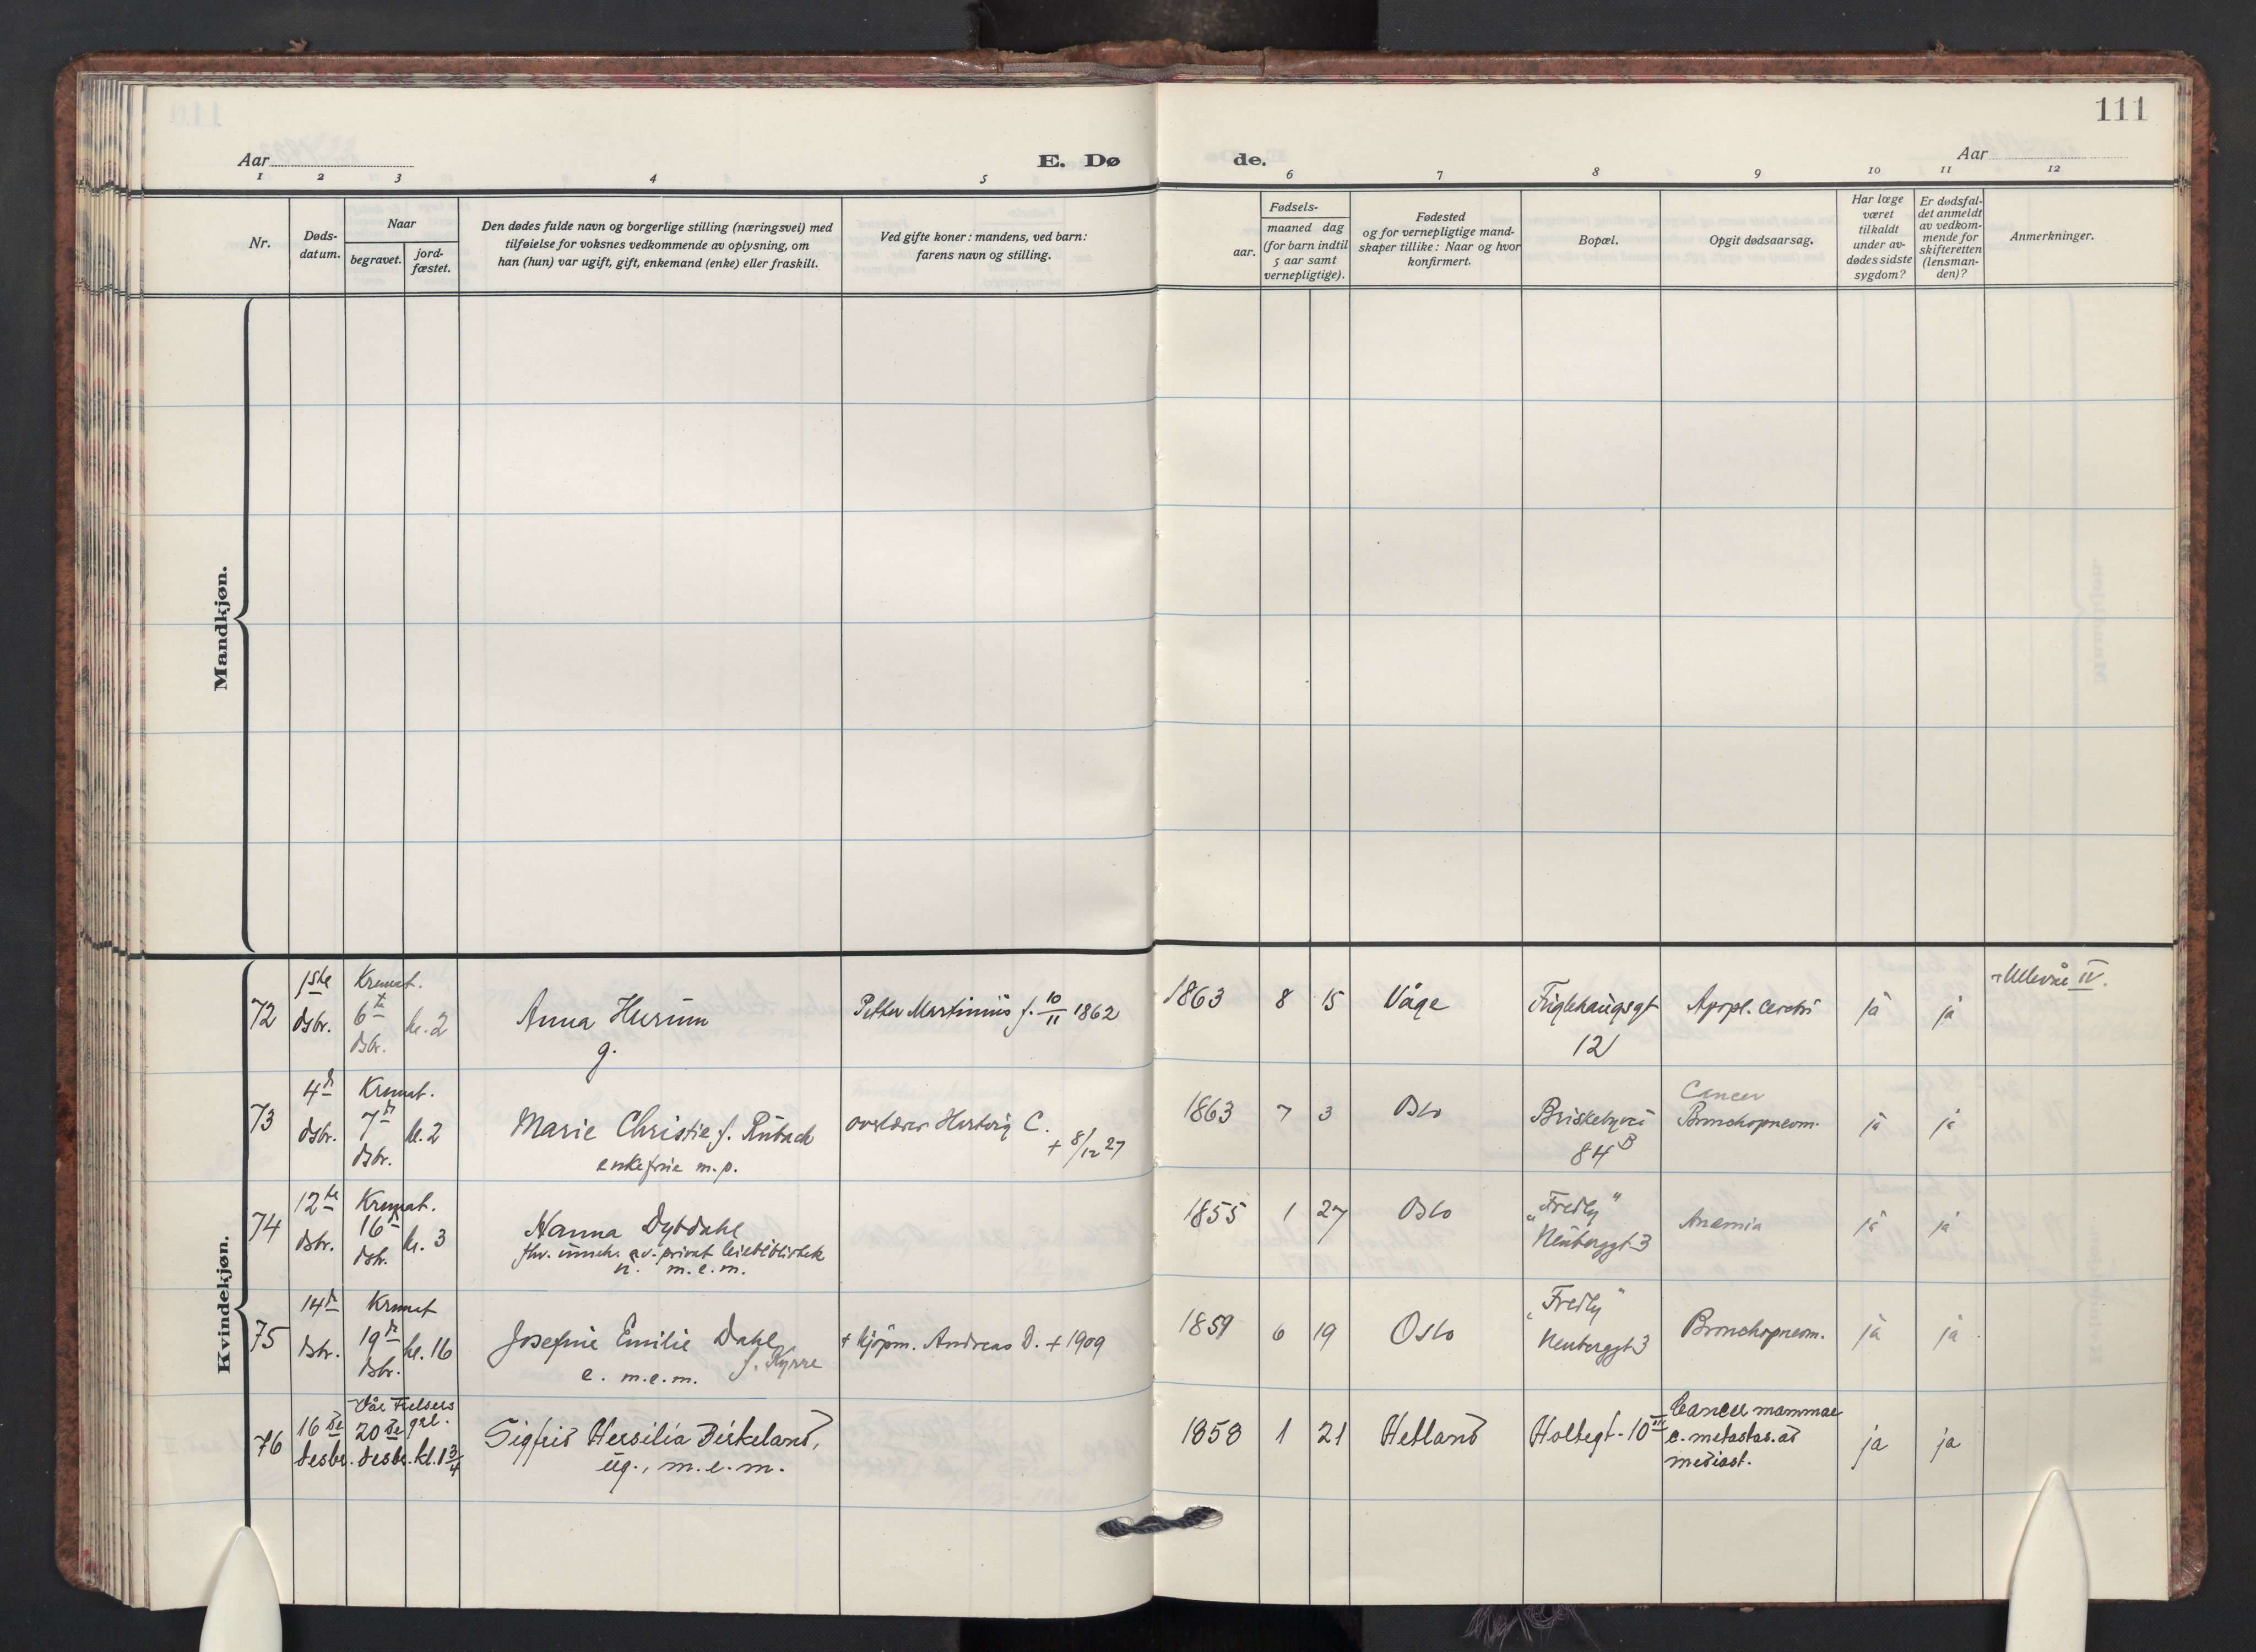 111
Aar
E. Dø
de.
Aar
1 2 3 4 5 6 7 8 9 10 11 12
Nr.
Døds-
datum.
Naar
begravet.
jord-
fæstet.
Den dødes fulde navn og borgerlige stilling (næringsvei) med
tilføielse for voksnes vedkommende av oplysning, om
han (hun) var ugift, gift, enkemand (enke) eller fraskilt.
Ved gifte koner: mandens, ved barn:
farens navn og stilling.
Fødsels-
aar.
maaned dag
(for barn indtil
5 aar samt
vernepligtige).
Fødested
og for vernepligtige mand-
skaper tillike: Naar og hvor
konfirmert.
Bopæl.
Opgit dødsaarsag.
Har læge
været
tilkaldt
under av-
dødes sidste
sygdom?
Er dødsfal-
det anmeldt
av vedkom-
mende for
skifteretten
(lensman-
den)?
Anmerkninger.
Mandkjøn.
Kvindekjøn.
72
1ste
dsbr.
Kremat.
6te
dsbr.
kl. 2
Anna Hurum
g.
Petter Martinius f. 10/11 1862
1863 8 15
Våge
Fuglehaugsgt
12
Appl. cerebri
ja
ja
Ullevål IV.
73
4de
dsbr.
Kremat.
7de
dsbr.
kl. 2
Marie Christie f. Rubach
enkefrue m.p.
overlærer Hartvig C.
+ 8/12 27
1863 7 3
Oslo
Briskebyvei
84B
Cancer
Bronchopneom.
ja
ja
74
12te
dsbr.
Kremat.
16de
dsbr.
kl. 3
Hanna Dybdahl
fhv. inneh. av privat leiebibliotek
u. m.e.m.
1855 1 27
Oslo
"Fredly"
Neuberggt 3
Anæmia
ja
ja
75
14de
dsbr.
Kremat
19de
dsbr.
kl. 16
Josefine Emilie Dahl
f. Kyrre
e. m.e.m.
+ kjøpm. Andreas D. + 1909
1859 6 19
Oslo
"Fredly"
Neuberggt 3
Bronchopneom.
ja
ja
76
16de
desbr.
Vår Frelsers
grl.
20de
desbr.
kl. 1 3/4
Sigfrid Hersilia Birkeland,
ug., m.e.m.
1858 1 21
Hetland
Holtegt. 10 III
Cancer mammae
c. metastas. ad
mediast.
ja
ja